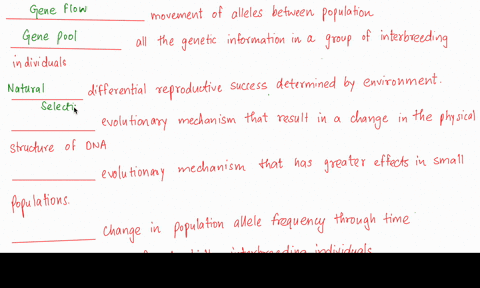 Gene flow movement of alleles between population
Gene pool all the genetic information in a group of interbreeding
individuals
Natural differential reproductive success determined by environment.
Selecti
evolutionary mechanism that result in a change in the physical
structure of DNA
evolutionary mechanism that has greater effects in small
populations.
change in population allele frequency through time
interbreeding individuals